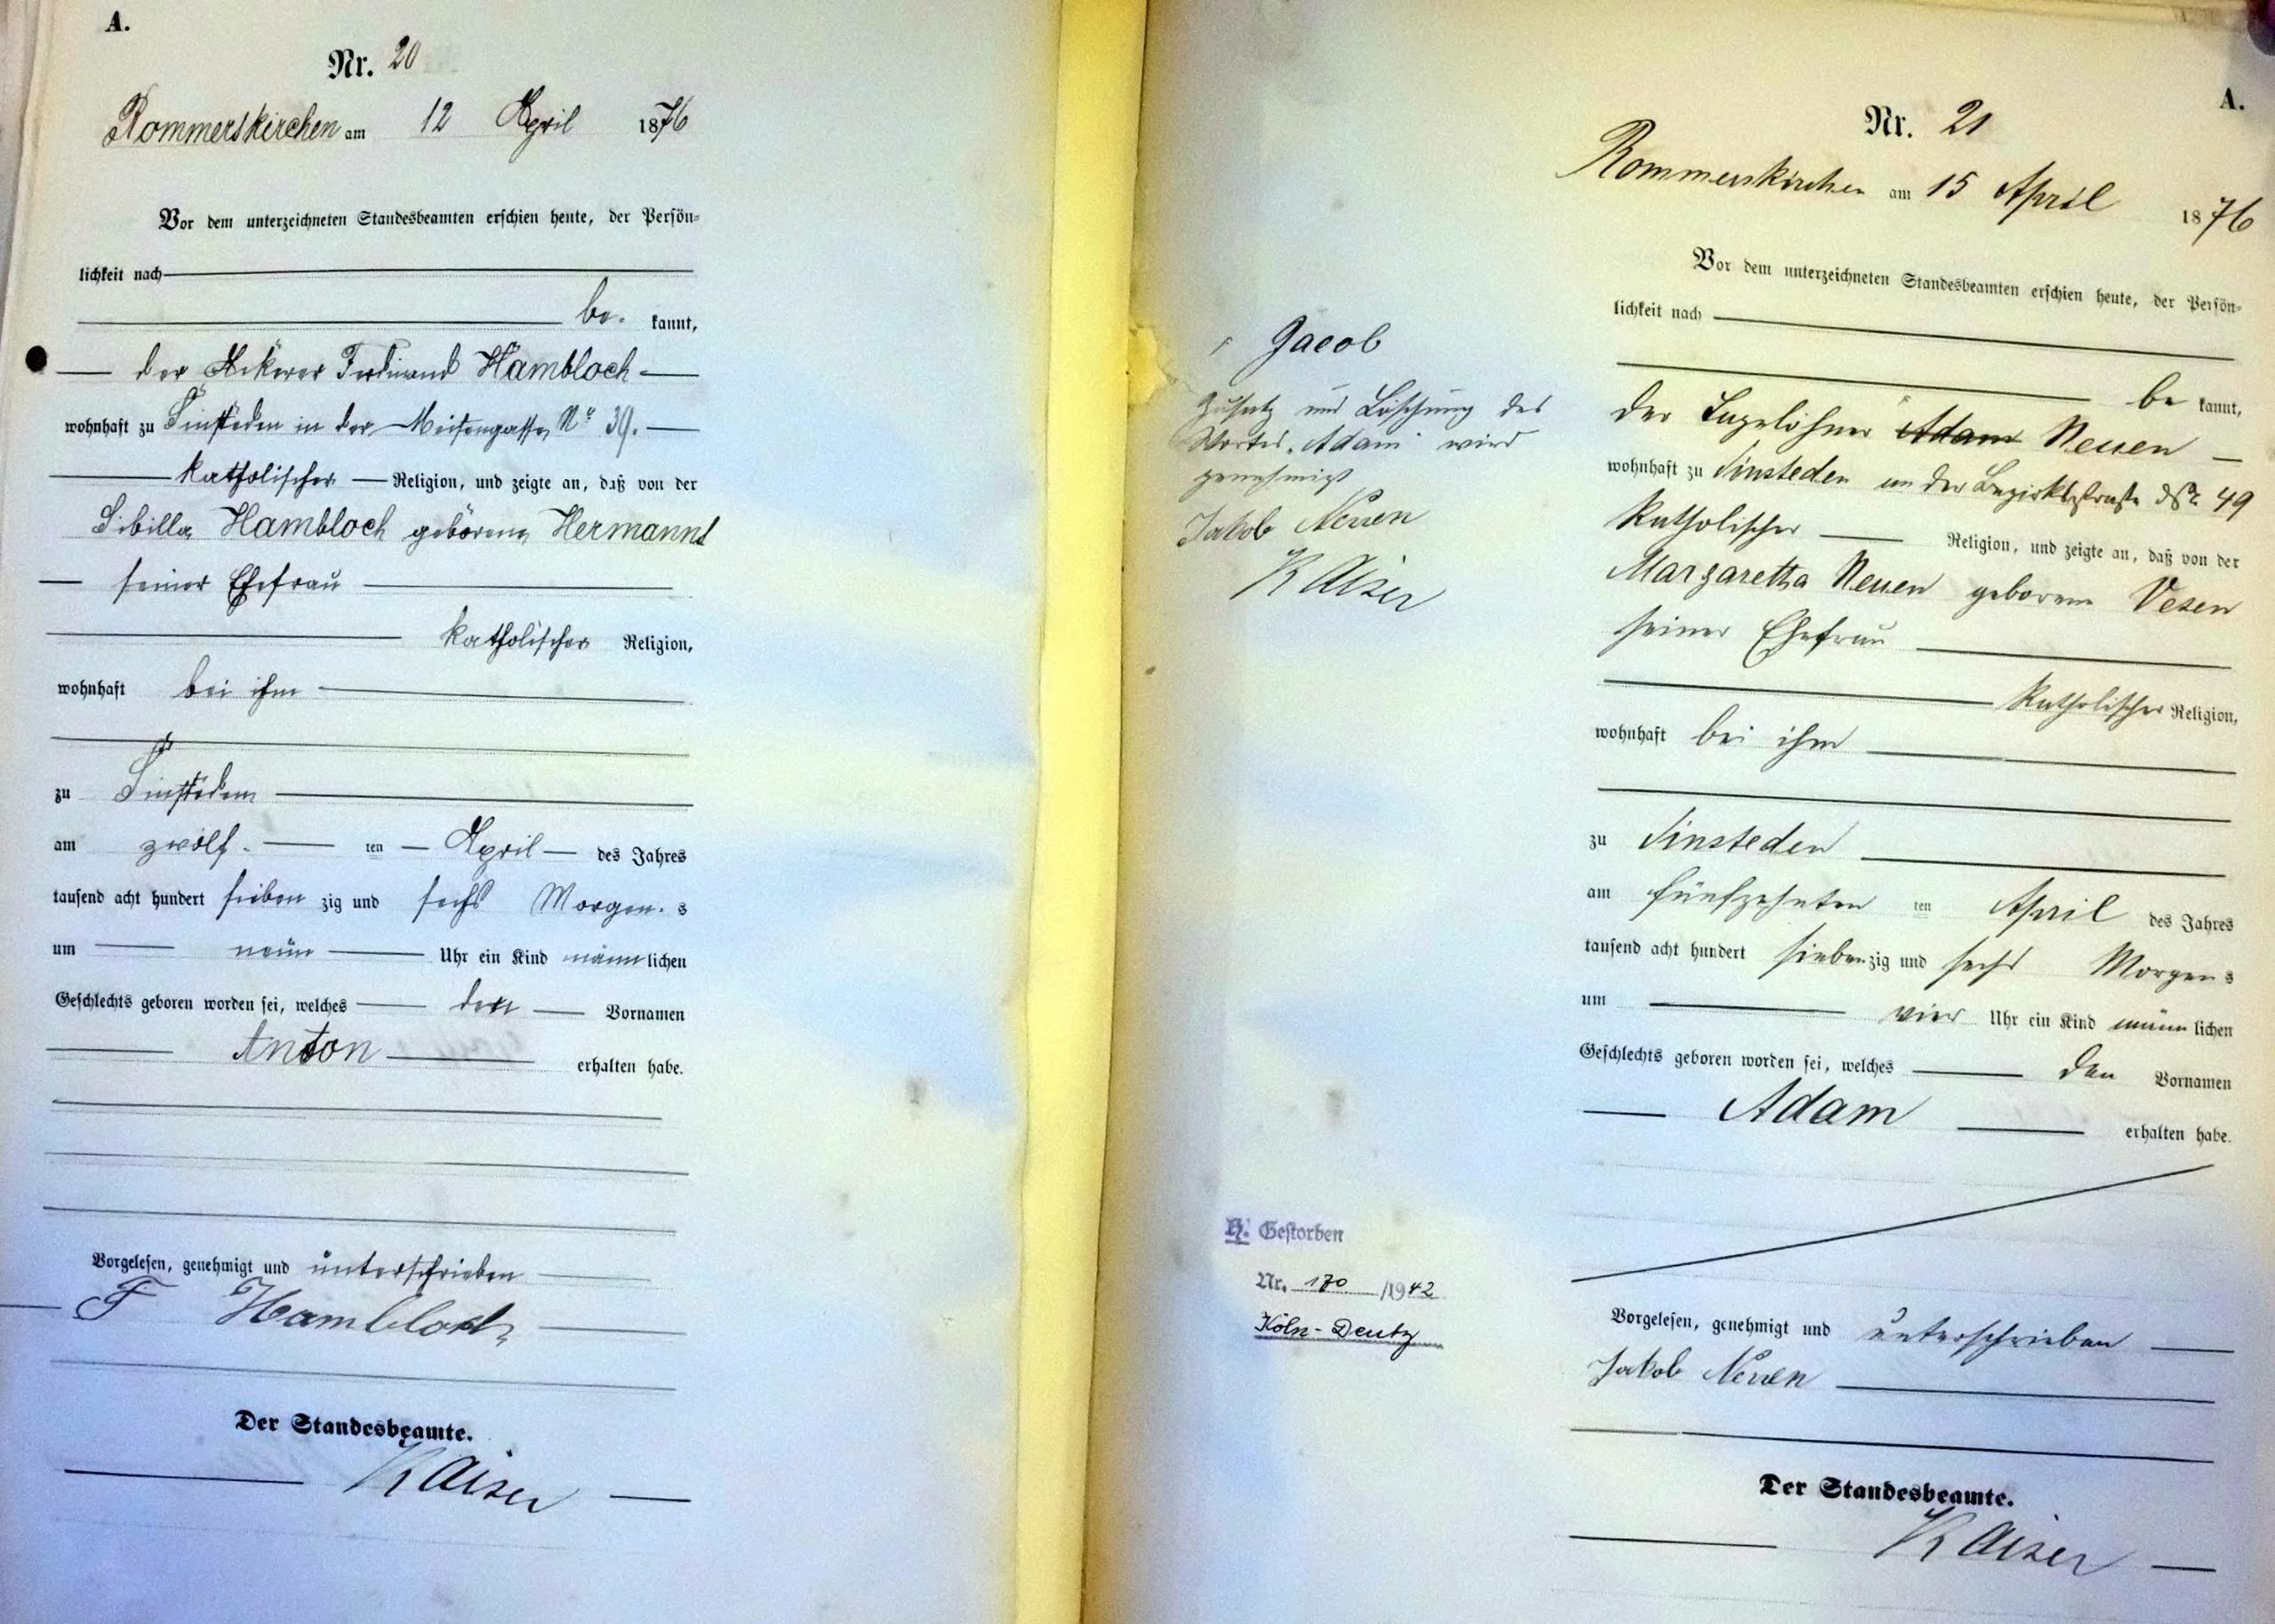 A.
Nr. 20
Rommerskirchen am 12 April 1876
Vor dem unterzeichneten Standesbeamten erschien heute, der Persön=
lichkeit nach
be- kannt,
der Ackerer Ferdinand Hambloch
wohnhaft zu Sinsteden in der Meisengasse No 39.
katholischer Religion, und zeigte an, daß von der
Sibilla Hambloch geborene Hermanns
seiner Ehefrau
katholischer Religion,
wohnhaft bei ihm
zu Sinsteden
am zwölf- ten April des Jahres
tausend acht hundert sieben zig und sechs Morgen s
um neun Uhr ein Kind männ lichen
Geschlechts geboren worden sei, welches den Vornamen
Anton erhalten habe.
Vorgelesen, genehmigt und unterschrieben
F Hambloch
Der Standesbeamte.
Kaiser
A.
Nr. 21
Rommerskirchen am 15 April 1876
Vor dem unterzeichneten Standesbeamten erschien heute, der Persön=
lichkeit nach
be kannt,
der Tagelöhner Adam Neuen
wohnhaft zu Sinsteden an der Bezirksstraße No 49
katholischer Religion, und zeigte an, daß von der
Margaretha Neuen geborene Vesen
seiner Ehefrau
katholischer Religion,
wohnhaft bei ihm
zu Sinsteden
am fünfzehnten ten April des Jahres
tausend acht hundert sieben zig und sechs Morgen s
um vier Uhr ein Kind männ lichen
Geschlechts geboren worden sei, welches den Vornamen
Adam erhalten habe.
Vorgelesen, genehmigt und unterschrieben
Jakob Neuen
Der Standesbeamte.
Kaiser
Jacob
Zusatz und Löschung des
Wortes „Adam" wird
genehmigt
Jakob Neuen
Kaiser
H. Gestorben
Nr. 170 /1942
Köln-Deutz